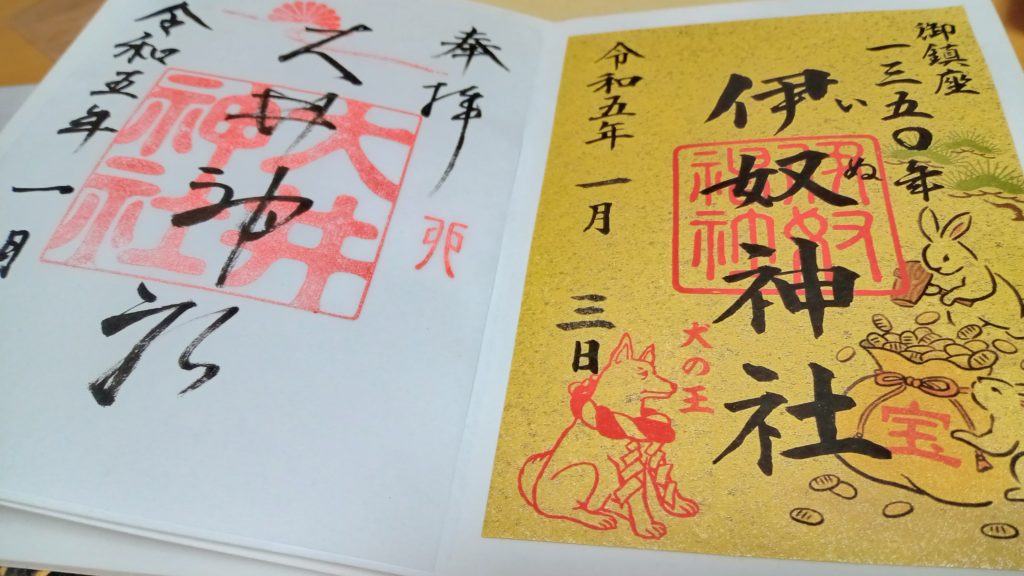 御鎮座
一三五〇年
伊奴神社
いぬ
宝
犬の王
令和五年 一月 三日
奉拝
卯
大井神社
大井
神社
令和五年 一月